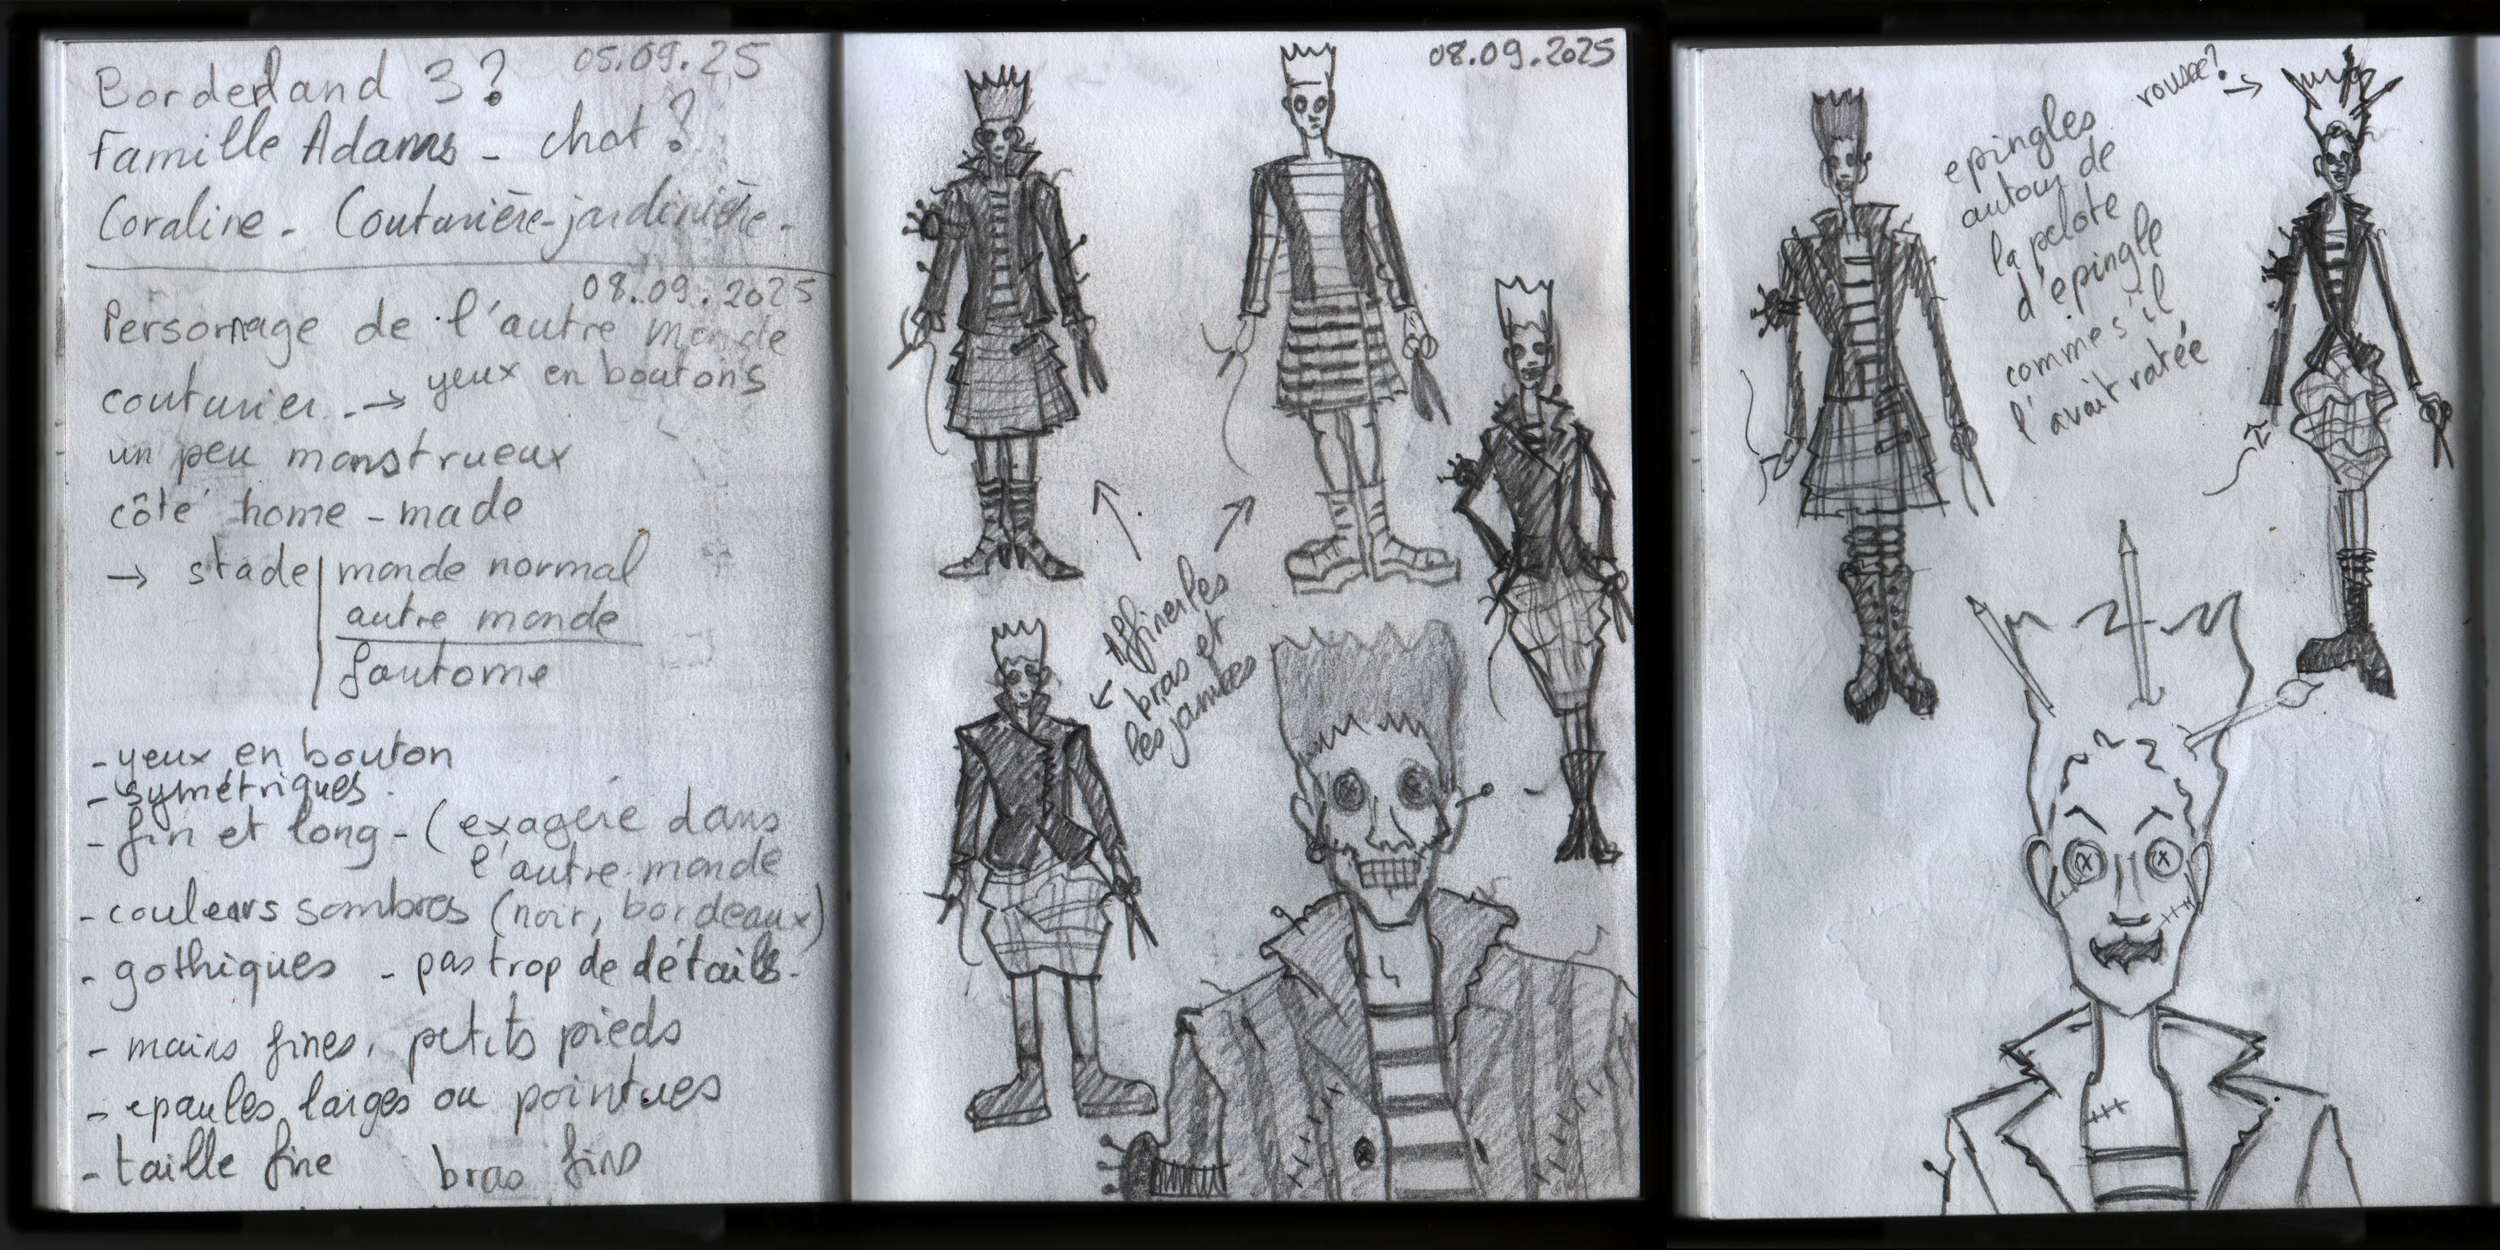 05.09.25
Borderland 3?
Famille Adams - chat?
Coraline - Couturière-jardinière -
08.09.2025
Personnage de l'autre monde
couturier. → yeux en boutons
un peu monstrueux
côté home-made
→ stade | monde normal
autre monde
fantome
- yeux en bouton
- symétriques.
- fin et long - (exagéré dans
l'autre monde
- couleurs sombres (noir, bordeaux)
- gothiques - pas trop de détails.
- mains fines, petits pieds
- epaules larges ou pointues
- taille fine bras fins
08.09.2025
Affiner les
bras et
les jambes
rousse?
epingles
autour de
la pelote
d'epingle
comme s'il
l'avait ratée